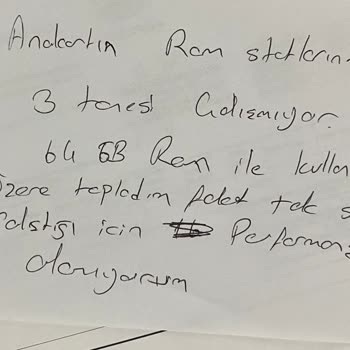 Anakartın Ram slotların
3 tanesi Çalışmıyor.
64 GB Ram ile kullan
Üzere topladım fakat tek s
çalıştığı için Performan
alamıyorum